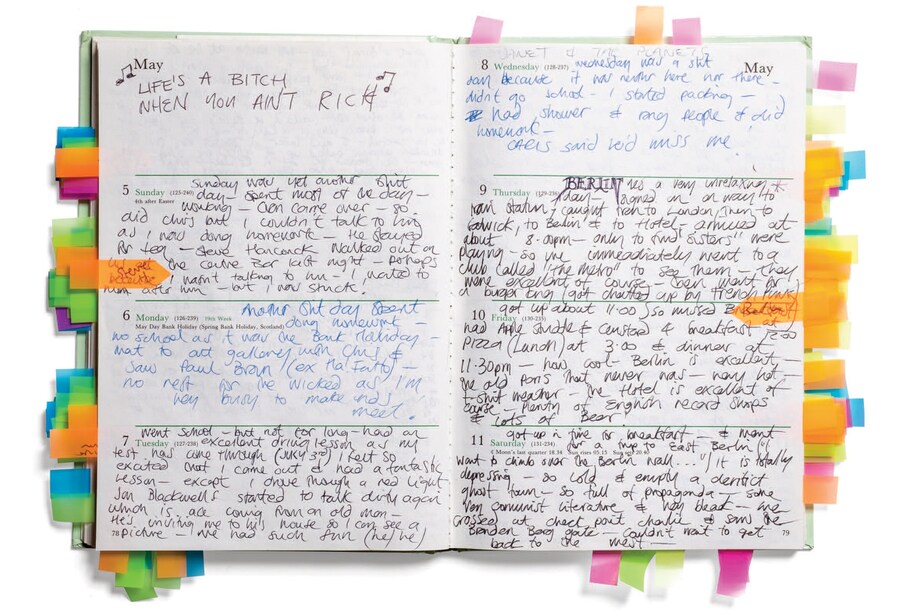 May
LIFE'S A BITCH
WHEN YOU AIN'T RICH
5 Sunday (125-240)
4th after Easter
sunday was yet another shit
day - spent most of the day -
working - Chris came over - so
did chris but I couldn't talk to him
as I was doing homework - He stayed
for tea - Steve Hancock walked out on
us at the centre bar last night - perhaps
I wasn't talking to him - I waited to
him after him - but I was stuck!
6 Monday (126-239) 19th Week
May Day Bank Holiday (Spring Bank Holiday, Scotland)
Another shit day spent
doing homework
no school as it was the Bank Holiday -
went to art gallery with Chris &
saw Paul Brown (ex Haçienda) -
no rest for the wicked as I'm
very busy to make ends
meet.
7 Tuesday (127-238)
went school - but not for long - had an
excellent driving lesson as my
test has come through (JULY 3rd) I felt so
excited that I came out & had a fantastic
lesson - except I drove through a red light
Ian Blackwell started to talk dirty again
which is ace coming from an old man -
He's inviting me to his house so I can see a
picture - we had such fun (he) he)
78
8 Wednesday (128-237)
May
JANET & THE PLANETS
wednesday was a shit
day because it was neither here nor there -
didn't go school - I started packing -
had shower & rang people & did
homework -
CHRIS said he'd miss me!
9 Thursday (129-236)
BERLIN was a very unrelaxing
Friday - on way to
train station, caught train to London, then to
Gatwick, to Berlin & to Hotel - arrived at
about 8:00pm - only to find "sisters" were
playing - so we immediately went to a
club called "the metro" to see them - they
were excellent of course - then went for
a burger king (got chatted up by trendy
10 Friday (130-235)
got up about 11:00) so missed
had Apple Strudle & custard 4 breakfast
Pizza (Lunch) at 3:00 & dinner at
11:30pm - had cool - Berlin is excellent -
the old Paris that never was - very hot -
t-shirt weather - the Hotel is excellent of
course - plenty of English record shops
& lots of Beer
11 Saturday (131-234)
Moon's last quarter 18.34 Sun rises 05.15
got up in time for breakfast - & went
for a trip to East Berlin ("
want to climb over the Berlin wall..." / it is totally
depressing - so cold & empty a derelict
ghost town - so full of propaganda - some
very communist literature & very bleak - we
crossed at check point charlie & saw the
Branden Berg gate - couldn't wait to get
back to the west
79